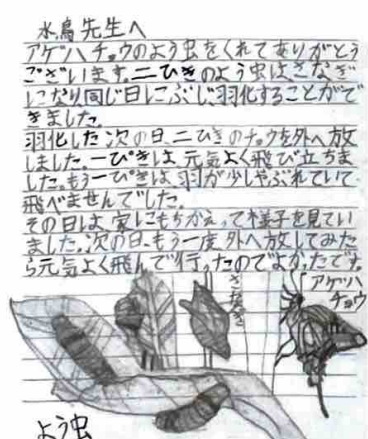 水鳥先生へ
アゲハチョウのよう虫をくれてありがとう
ございます。二ひきのよう虫は、さなぎ
になり同じ日にぶじ羽化することがで
きました。
羽化した次の日、二ひきのチョウを外へ放
しました。一ぴきは元気よく飛び立ちま
した。もう一ぴきは、羽が少しやぶれていて
飛べませんでした。
その日は、家にもちかえって様子を見てい
ました。次の日、もう一度外へ放してみた
ら元気よく飛んで行ったのでよかったです。
さなぎ
アゲハ
チョウ
よう虫